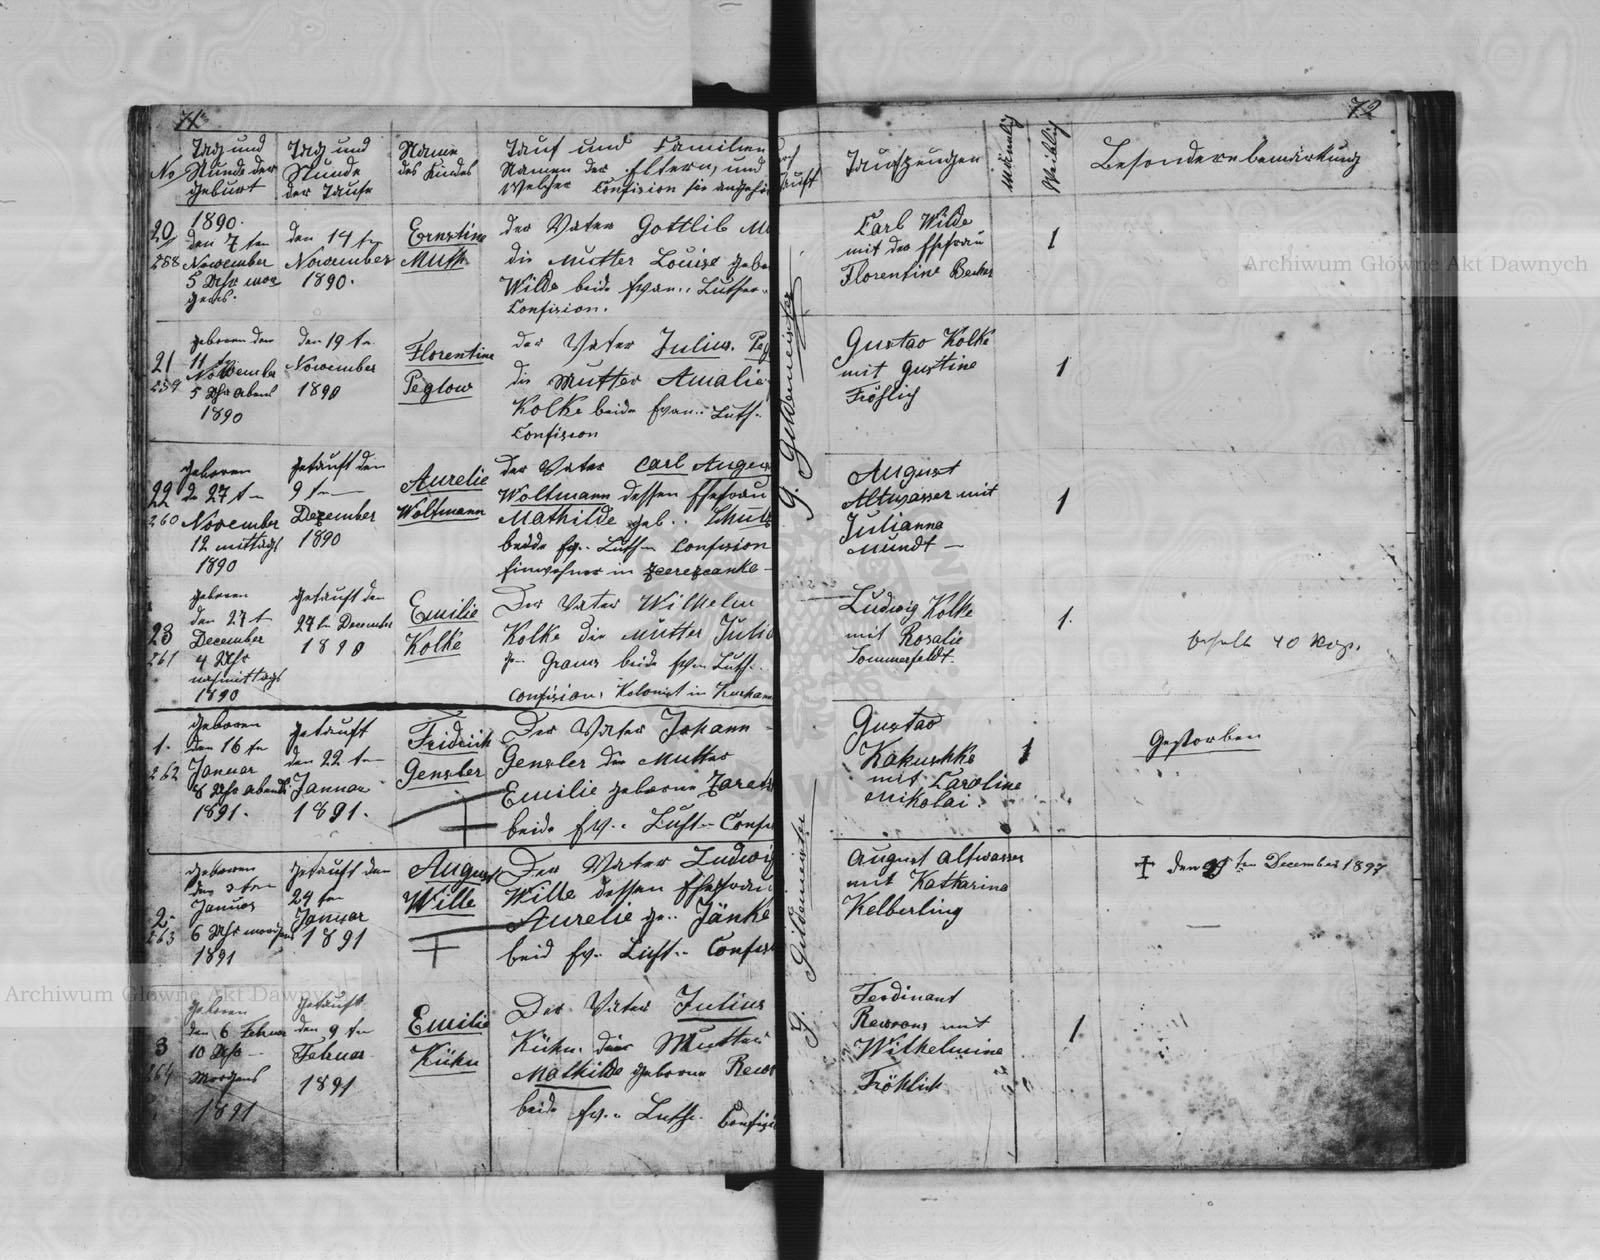 71
No
Tag und
Stunde der
Geburt
Tag und
Stunde
der Taufe
Name
des Kindes
Tauf und Familien
Namen der Eltern, und
Welcher Confision sie
20
258
1890.
den 7 ten
November
5 Uhr
den 14 ten
November
1890.
Ernstine
Muth
der Vater Gottlib
die Mutter Louise
Wilde beide Evan.. Luther..
Confision.
21
259
geboren den
11 ten
November
5 Uhr Abens
1890
den 19 ten
November
1890
Florentine
Peglow
der Vater Julius
die Mutter Amalie
Kolke beide Evan.. Luth..
Confision
22
260
geboren
de 27 ten
November
12 mittags
1890
getauft den
9 ten
Dezember
1890
Aurelie
Woltmann
Der Vater Carl
Woltmann dessen Ehefrau
Mathilde geb..
beide Ev.. Luth.. Confision
Einwohner in
23
261
geboren
den 27 t
December
4 Uhr
nachmittags
1890
getauft den
27 ten December
1890
Emilie
Kolke
Der Vater Wilhelm
Kolke die Mutter
beide Ev.. Luth..
Confision, Kolonist in
1.
262
geboren
den 16 ten
Januar
8 Uhr abends
1891.
getauft
den 22 ten
Januar
1891.
Fridrich
Gensler
Der Vater Johann
Gensler die Mutter
Emilie geborne
beide Ev.. Luth..
2.
263
geboren
den
Januar
6 Uhr morgens
1891
getauft den
29 ten
Januar
1891
August
Wille
Der Vater Ludwig
Wille dessen Ehefrau
Aurelie ge.. Jänke
beid Ev.. Luth..
3
264
geboren
den 6 Febuar
10 Uhr
Morgens
1891
getauft
den 9 ten
Febuar
1891
Emilie
Kühn
Der Vater Julius
Kühn. die Mutter
Mathilde geborne
beide Ev.. Luth.
72
Taufzeugen
Mänlich
Weiblich
Besondere bemärkung
G. Gildemeister
Carl Wilde
mit der Ehefrau
Florentine Becker
1
Gustav Kolke
mit Justine
Fröhlich
1
August
Altwasser mit
Julianna
Mundt
1
Ludwig Kolke
mit Rosalie
Sommerfeldt.
1.
40 Kop.
Gustav
Kakuschke
mit Caroline
Nikolai.
1
Gestorben
G. Gildemeister
August Altwasser
mit Katharina
Kelberling
den ten December 1897
Ferdinant
mit
Wilhelmine
Fröhlich
1
Archiwum Główne Akt Dawnych
Archiwum Główne Akt Dawnych